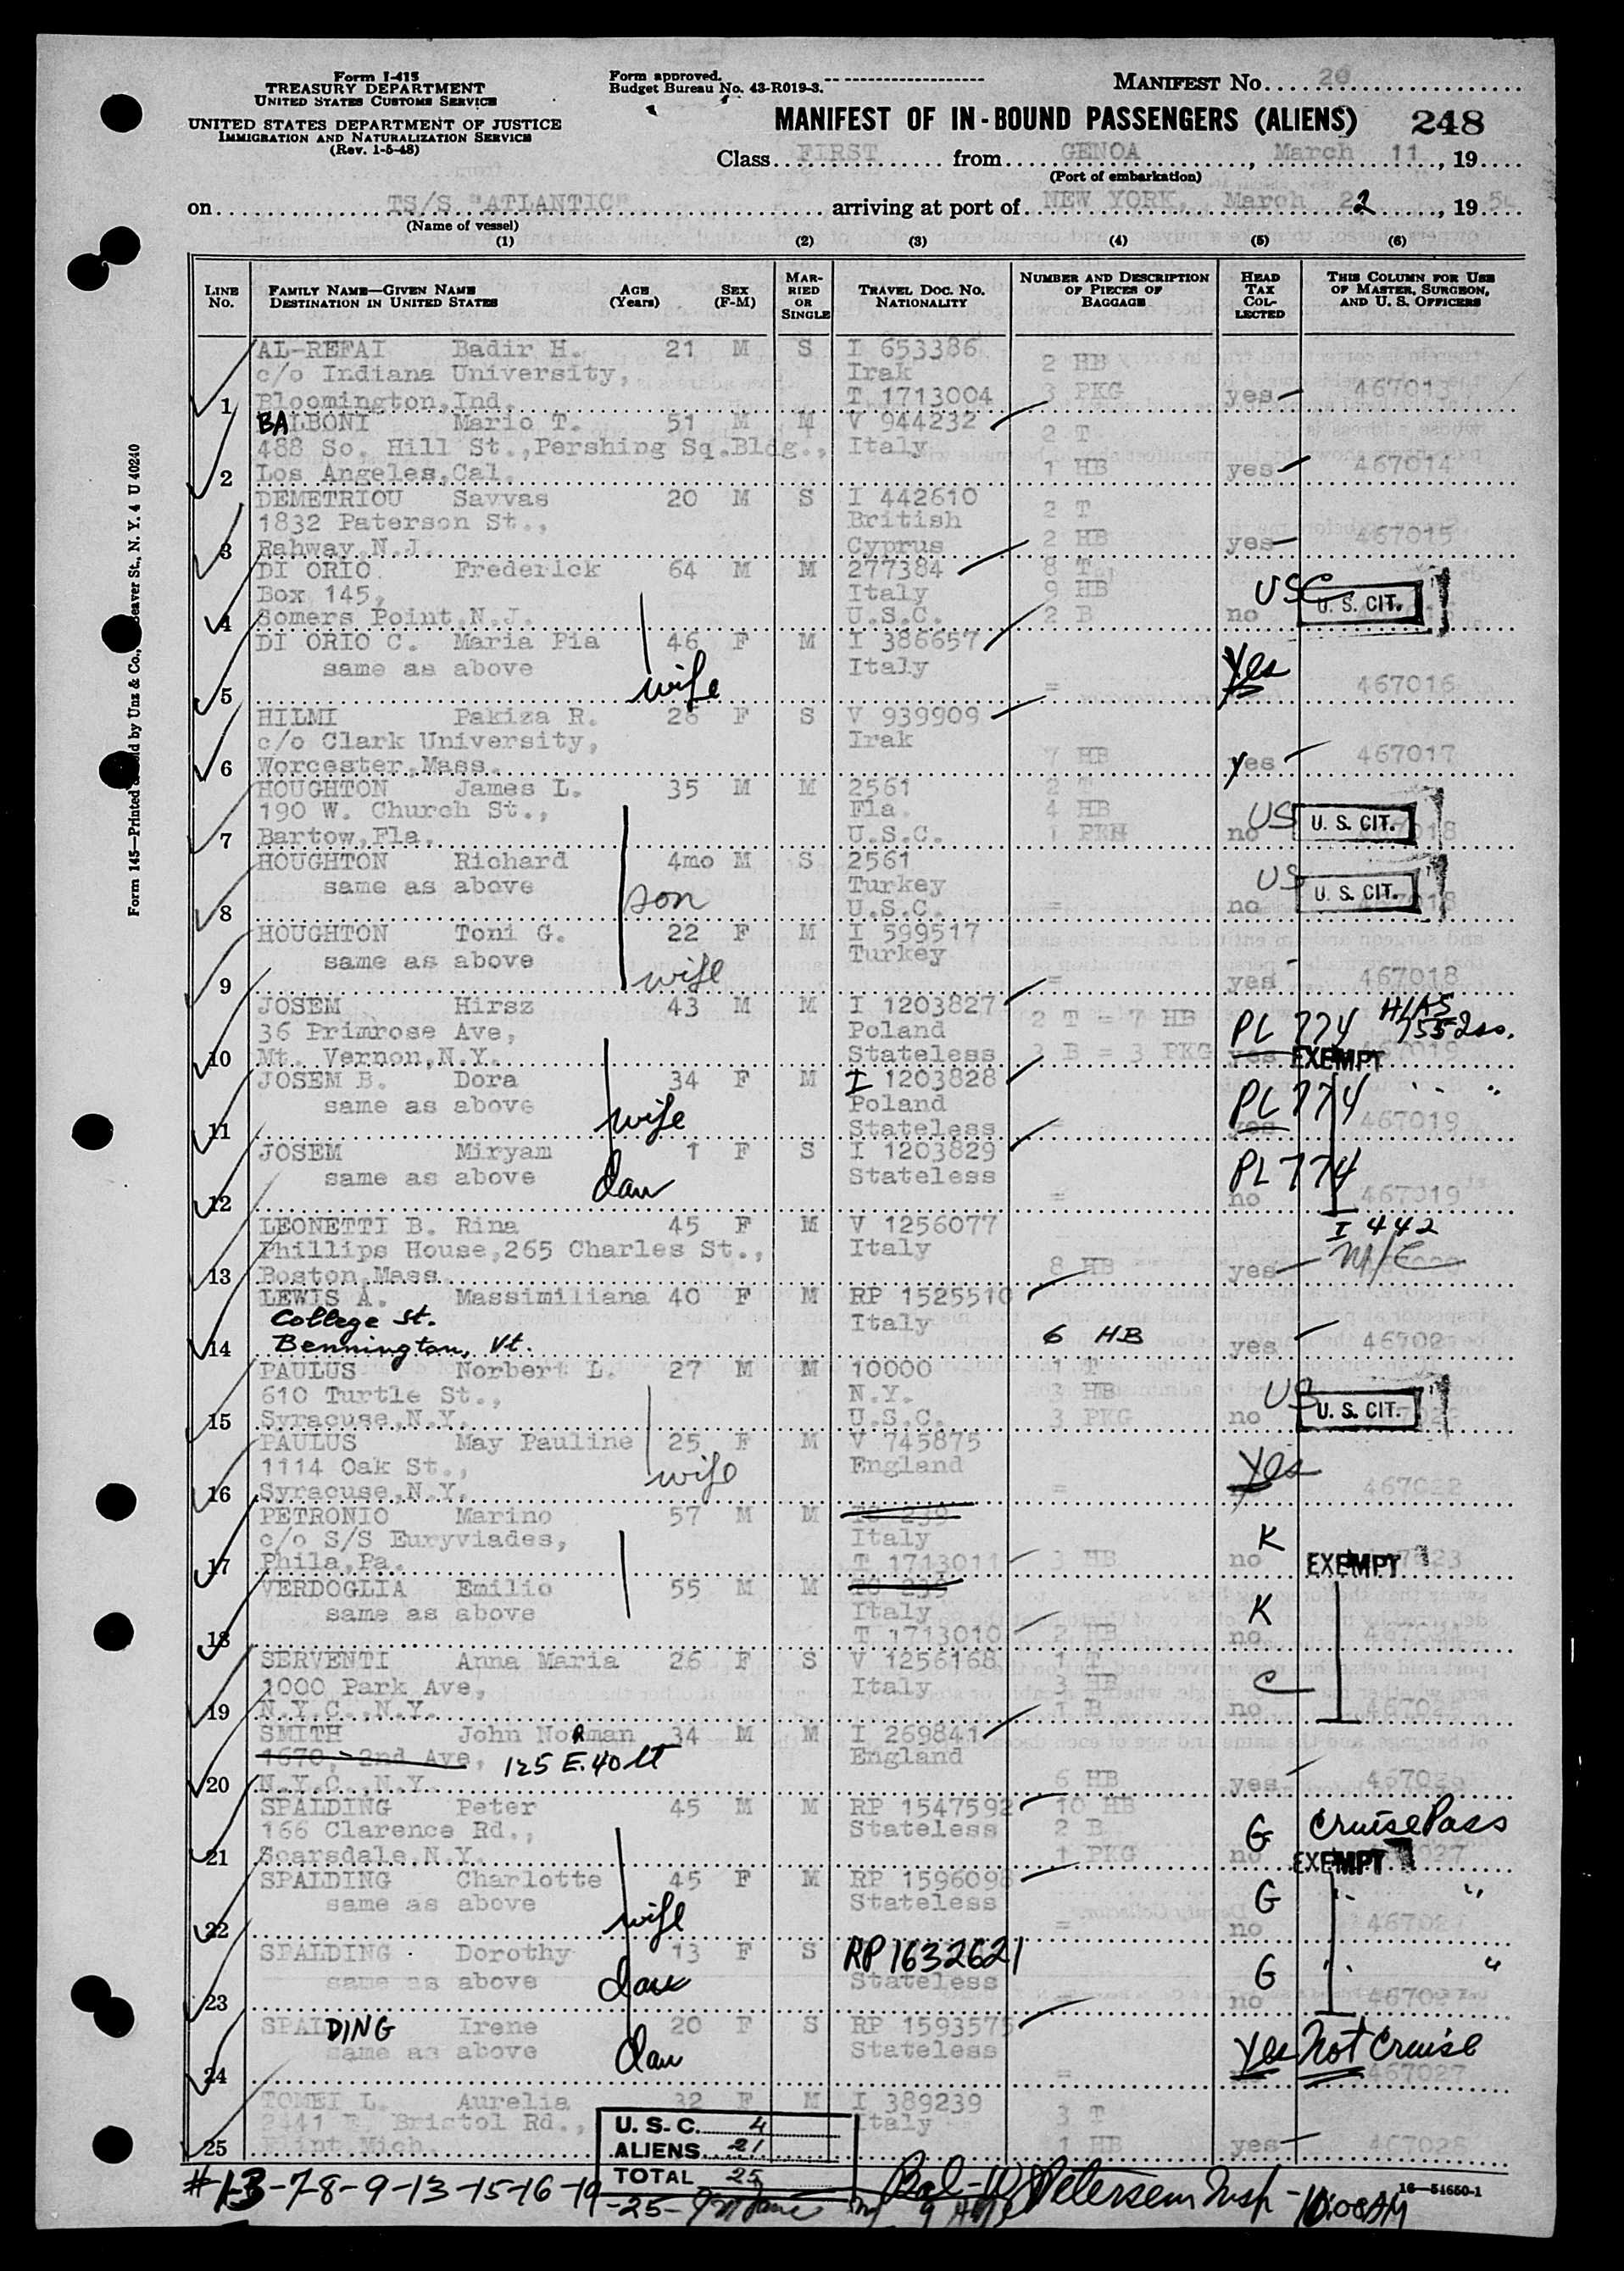 Form I-415
TREASURY DEPARTMENT
UNITED STATES CUSTOMS SERVICE
UNITED STATES DEPARTMENT OF JUSTICE
IMMIGRATION AND NATURALIZATION SERVICE
(Rev. 1-5-48)
Form approved.
Budget Bureau No. 43-R019-3.
MANIFEST No. 20
MANIFEST OF IN-BOUND PASSENGERS (ALIENS) 248
Class FIRST from GENOA, March 11, 19
(Port of embarkation)
on TS/S "ATLANTIC" arriving at port of NEW YORK, March 22, 19 54
(Name of vessel)
(1) (2) (3) (4) (5) (6)
LINE No. FAMILY NAME—GIVEN NAME DESTINATION IN UNITED STATES AGE (Years) SEX (F-M) MARRIED OR SINGLE TRAVEL DOC. NO. NATIONALITY NUMBER AND DESCRIPTION OF PIECES OF BAGGAGE HEAD TAX COLLECTED THIS COLUMN FOR USE OF MASTER, SURGEON, AND U. S. OFFICERS
AL-REFAI Badir H. 21 M S I 653386
c/o Indiana University, Irak 2 HB
1 Bloomington,Ind. T 1713004 3 PKG yes 467013
BALBONI Mario T. 51 M M V 944232
488 So. Hill St.,Pershing Sq.Bldg., Italy 2 T
2 Los Angeles,Cal. 1 HB yes 467014
DEMETRIOU Savvas 20 M S I 442610
1832 Paterson St., British 2 T
3 Rahway,N.J. Cyprus 2 HB yes 467015
DI ORIO Frederick 64 M M 277384 8 T
Box 145, Italy 9 HB USC U. S. CIT.
4 Somers Point,N.J. U.S.C. 2 B no
DI ORIO C. Maria Pia 46 F M I 386657
same as above Italy Yes
5 wife = 467016
HILMI Pakiza R. 26 F S V 939909
c/o Clark University, Irak
6 Worcester,Mass. 7 HB yes 467017
HOUGHTON James L. 35 M M 2561 2 T
190 W. Church St., Fla. 4 HB US U. S. CIT.
7 Bartow,Fla. U.S.C. 1 PKH no 467018
HOUGHTON Richard 4mo M S 2561
same as above son Turkey US U. S. CIT.
8 U.S.C. = no 467018
HOUGHTON Toni G. 22 F M I 599517
same as above Turkey
9 wife = yes 467018
JOSEM Hirsz 43 M M I 1203827 HIAS
36 Primrose Ave, Poland 2 T = 7 HB PL 774
10 Mt. Vernon,N.Y. Stateless 3 B = 3 PKG yes EXEMPT 467019
JOSEM B. Dora 34 F M I 1203828
same as above wife Poland PL 774 " "
11 Stateless = yes 467019
JOSEM Miryam 1 F S I 1203829
same as above dau Stateless PL 774
12 = no 467019
LEONETTI B. Rina 45 F M V 1256077 I 442
Phillips House,265 Charles St., Italy
13 Boston,Mass. 8 HB yes
LEWIS A. Massimiliana 40 F M RP 1525510
College St. Italy 6 HB
14 Bennington, Vt. yes 46702
PAULUS Norbert L. 27 M M 10000 1 T
610 Turtle St., N.Y. 3 HB US
15 Syracuse,N.Y. U.S.C. 3 PKG no U. S. CIT.
PAULUS May Pauline 25 F M V 745875
1114 Oak St., wife England Yes
16 Syracuse,N.Y. = 467022
PETRONIO Marino 57 M M TC 239
c/o S/S Euryviades, Italy K
17 Phila,Pa. T 1713011 3 HB no EXEMPT
VERDOGLIA Emilio 55 M M
same as above Italy K
18 T 1713010 2 HB no
SERVENTI Anna Maria 26 F S V 1256168 1 T
1000 Park Ave, Italy 3 HB C
19 N.Y.C.,N.Y. 1 B no
SMITH John Norman 34 M M I 269841
1670, 2nd Ave, 125 E. 40 St England
20 N.Y.C.,N.Y. 6 HB yes
SPALDING Peter 45 M M RP 1547592 10 HB
166 Clarence Rd., Stateless 2 B G Cruise Pass
21 Scarsdale,N.Y. 1 PKG no EXEMPT
SPALDING Charlotte 45 F M RP 1596098
same as above wife Stateless G " "
22 = no 467027
SPALDING Dorothy 13 F S RP 1632621
same as above dau Stateless G " "
23 = no
SPALDING Irene 20 F S RP 1593575
same as above dau Stateless Yes Not Cruise
24 = 467027
TOMEI L. Aurelia 32 F M I 389239
2441 E. Bristol Rd., Italy 3 T
25 Flint,Mich. 1 HB yes 467028
U. S. C. 4
ALIENS 21
TOTAL 25
#1-3-7-8-9-13-15-16-19
-25- Petersen Insp - 10:00AM
16—54650-1
Form 145—Printed
by Unz & Co.,
eaver St., N. Y. 4 U 40240